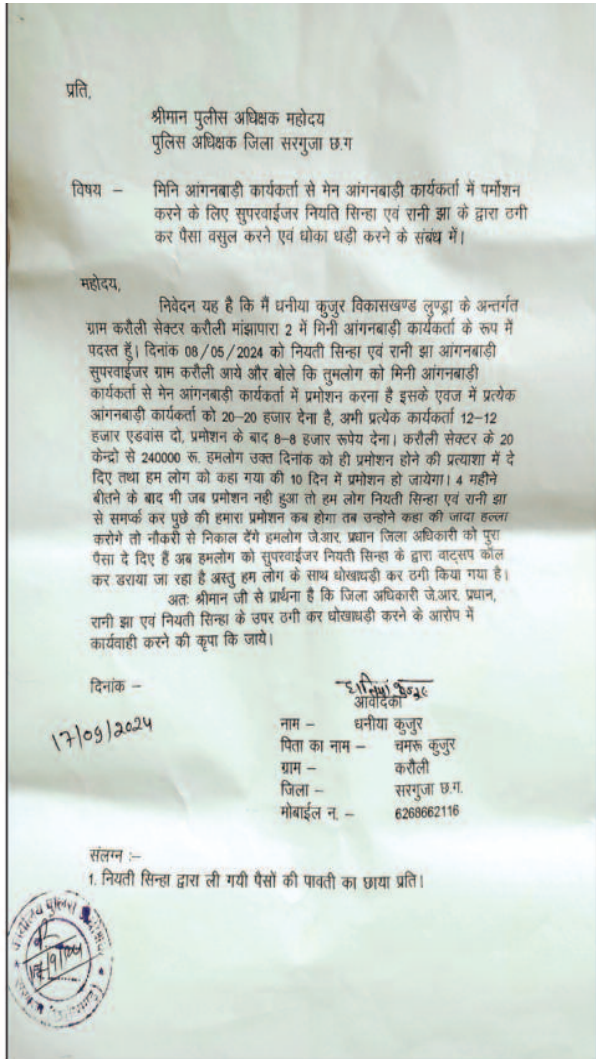 प्रति,
श्रीमान पुलीस अधिक्षक महोदय
पुलिस अधिक्षक जिला सरगुजा छ.ग
विषय – मिनि आंगनबाड़ी कार्यकर्ता से मेन आंगनबाड़ी कार्यकर्ता में पर्मोशन
करने के लिए सुपरवाईजर नियति सिन्हा एवं रानी झा के द्वारा ठगी
कर पैसा वसुल करने एवं धोका धड़ी करने के संबंध में।
महोदय,
निवेदन यह है कि मैं धनीया कुजुर विकासखण्ड लुण्ड्रा के अन्तर्गत
ग्राम करौली सेक्टर करौली मांझापारा 2 में मिनी आंगनबाड़ी कार्यकर्ता के रूप में
पदस्त हुँ। दिनांक 08/05/2024 को नियती सिन्हा एवं रानी झा आंगनबाड़ी
सुपरवाईजर ग्राम करौली आये और बोले कि तुमलोग को मिनी आंगनबाड़ी
कार्यकर्ता से मेन आंगनबाड़ी कार्यकर्ता में प्रमोशन करना है इसके एवज में प्रत्येक
आंगनबाड़ी कार्यकर्ता को 20–20 हजार देना है, अभी प्रत्येक कार्यकर्ता 12–12
हजार एडवांस दो, प्रमोशन के बाद 8–8 हजार रूपेय देना। करौली सेक्टर के 20
केन्द्रो से 240000 रू. हमलोग उक्त दिनांक को ही प्रमोशन होने की प्रत्याशा में दे
दिए तथा हम लोग को कहा गया की 10 दिन में प्रमोशन हो जायेगा। 4 महीने
बीतने के बाद भी जब प्रमोशन नही हुआ तो हम लोग नियती सिन्हा एवं रानी झा
से समर्फ्क कर पुछे की हमारा प्रमोशन कब होगा तब उन्होने कहा की जादा हल्ला
करोगे तो नौकरी से निकाल देंगे हमलोग जे.आर. प्रधान जिला अधिकारी को पुरा
पैसा दे दिए हैं अब हमलोग को सुपरवाईजर नियती सिन्हा के द्वारा वाट्सप कॉल
कर डराया जा रहा है अस्तु हम लोग के साथ धोखाधड़ी कर ठगी किया गया है।
अतः श्रीमान जी से प्रार्थना है कि जिला अधिकारी जे.आर. प्रधान,
रानी झा एवं नियती सिन्हा के उपर ठगी कर धोखाधड़ी करने के आरोप में
कार्यवाही करने की कृपा कि जाये।
दिनांक –
17/09/2024
धनिया कुजुर
आवेदिका
नाम – धनीया कुजुर
पिता का नाम – चमरू कुजुर
ग्राम – करौली
जिला – सरगुजा छ.ग.
मोबाईल न. – 6268662116
संलग्न :–
1. नियती सिन्हा द्वारा ली गयी पैसों की पावती का छाया प्रति।
कार्यालय पुलिस